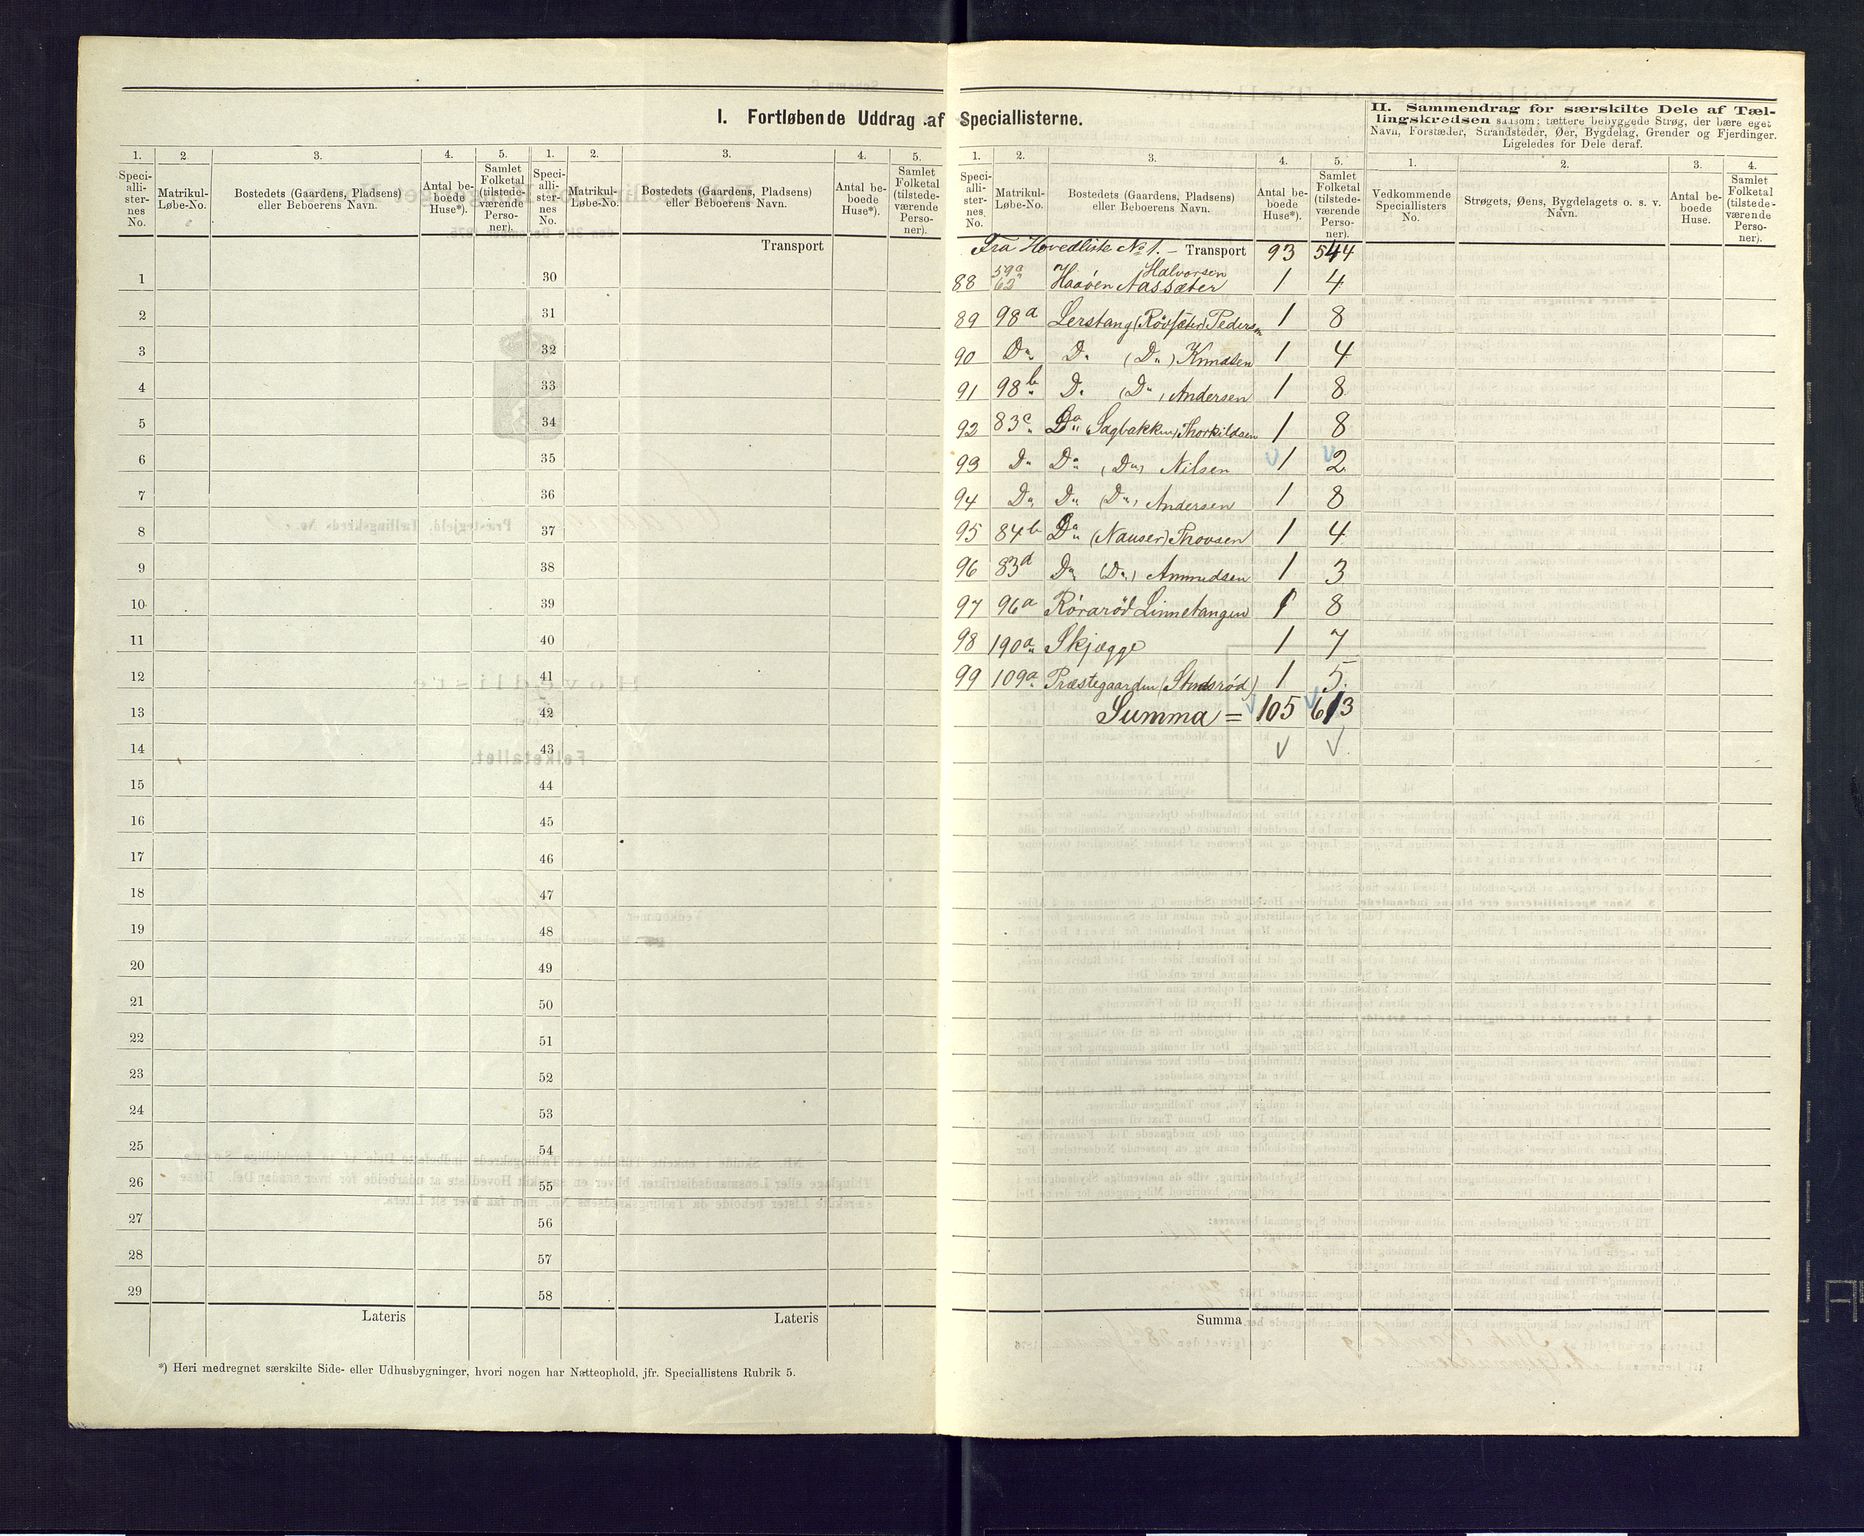 I. Fortløbende Uddrag af Speciallisterne.
II. Sammendrag for særskilte Dele af Tæl-
lingskredsen saasom: tættere bebyggede Strøg, der bære eget
Navn, Forstæder, Strandsteder, Øer, Bygdelag, Grender og Fjerdinger.
Ligeledes for Dele deraf.
1. 2. 3. 4. 5. 1. 2. 3. 4. 5. 1. 2. 3. 4. 5. 1. 2. 3. 4.
Speci-alli-ster-nes No. Matrikul-Løbe-No. Bostedets (Gaardens, Pladsens) eller Beboerens Navn. Antal be-boede Huse*). Samlet Folketal (tilstede-værende Perso-ner).
Speci-alli-ster-nes No. Matrikul-Løbe-No. Bostedets (Gaardens, Pladsens) eller Beboerens Navn. Antal be-boede Huse*). Samlet Folketal (tilstede-værende Perso-ner).
Speci-alli-ster-nes No. Matrikul-Løbe-No. Bostedets (Gaardens, Pladsens) eller Beboerens Navn. Antal be-boede Huse*). Samlet Folketal (tilstede-værende Perso-ner).
Vedkommende Speciallisters No. Strøgets, Øens, Bygdelagets o. s. v. Navn. Antal be-boede Huse. Samlet Folketal (tilstede-værende Perso-ner).
Transport
Fra Hovedliste No 1. – Transport 93 544
1 30 88 59a 62 Haaøen Aassæter Halvorsen 1 4
2 31 89 98a Lerstang (Rødsæter) Pedersen 1 8
3 32 90 Do Do (Do) Knudsen 1 4
4 33 91 98b Do (Do) Andersen 1 8
5 34 92 83c Do (Sagbakken) Thorkildsen 1 8
6 35 93 Do Do (Do) Nilsen 1 2
7 36 94 Do Do (Do) Andersen 1 8
8 37 95 84b Do (Nauser) Thovsen 1 4
9 38 96 83d Do (Do) Amundsen 1 3
10 39 97 96a Rørarød Linnetangen 1 8
11 40 98 190a Skjægge 1 7
12 41 99 109a Præstegaarden (Stusrød) 1 5
13 42 Summa = 105 613
14 43
15 44
16 45
17 46
18 47
19 48
20 49
21 50
22 51
23 52
24 53
25 54
26 55
27 56
28 57
29 58
Lateris Lateris Summa
*) Heri medregnet særskilte Side- eller Udhusbygninger, hvori nogen har Natteophold, jfr. Speciallistens Rubrik 5.